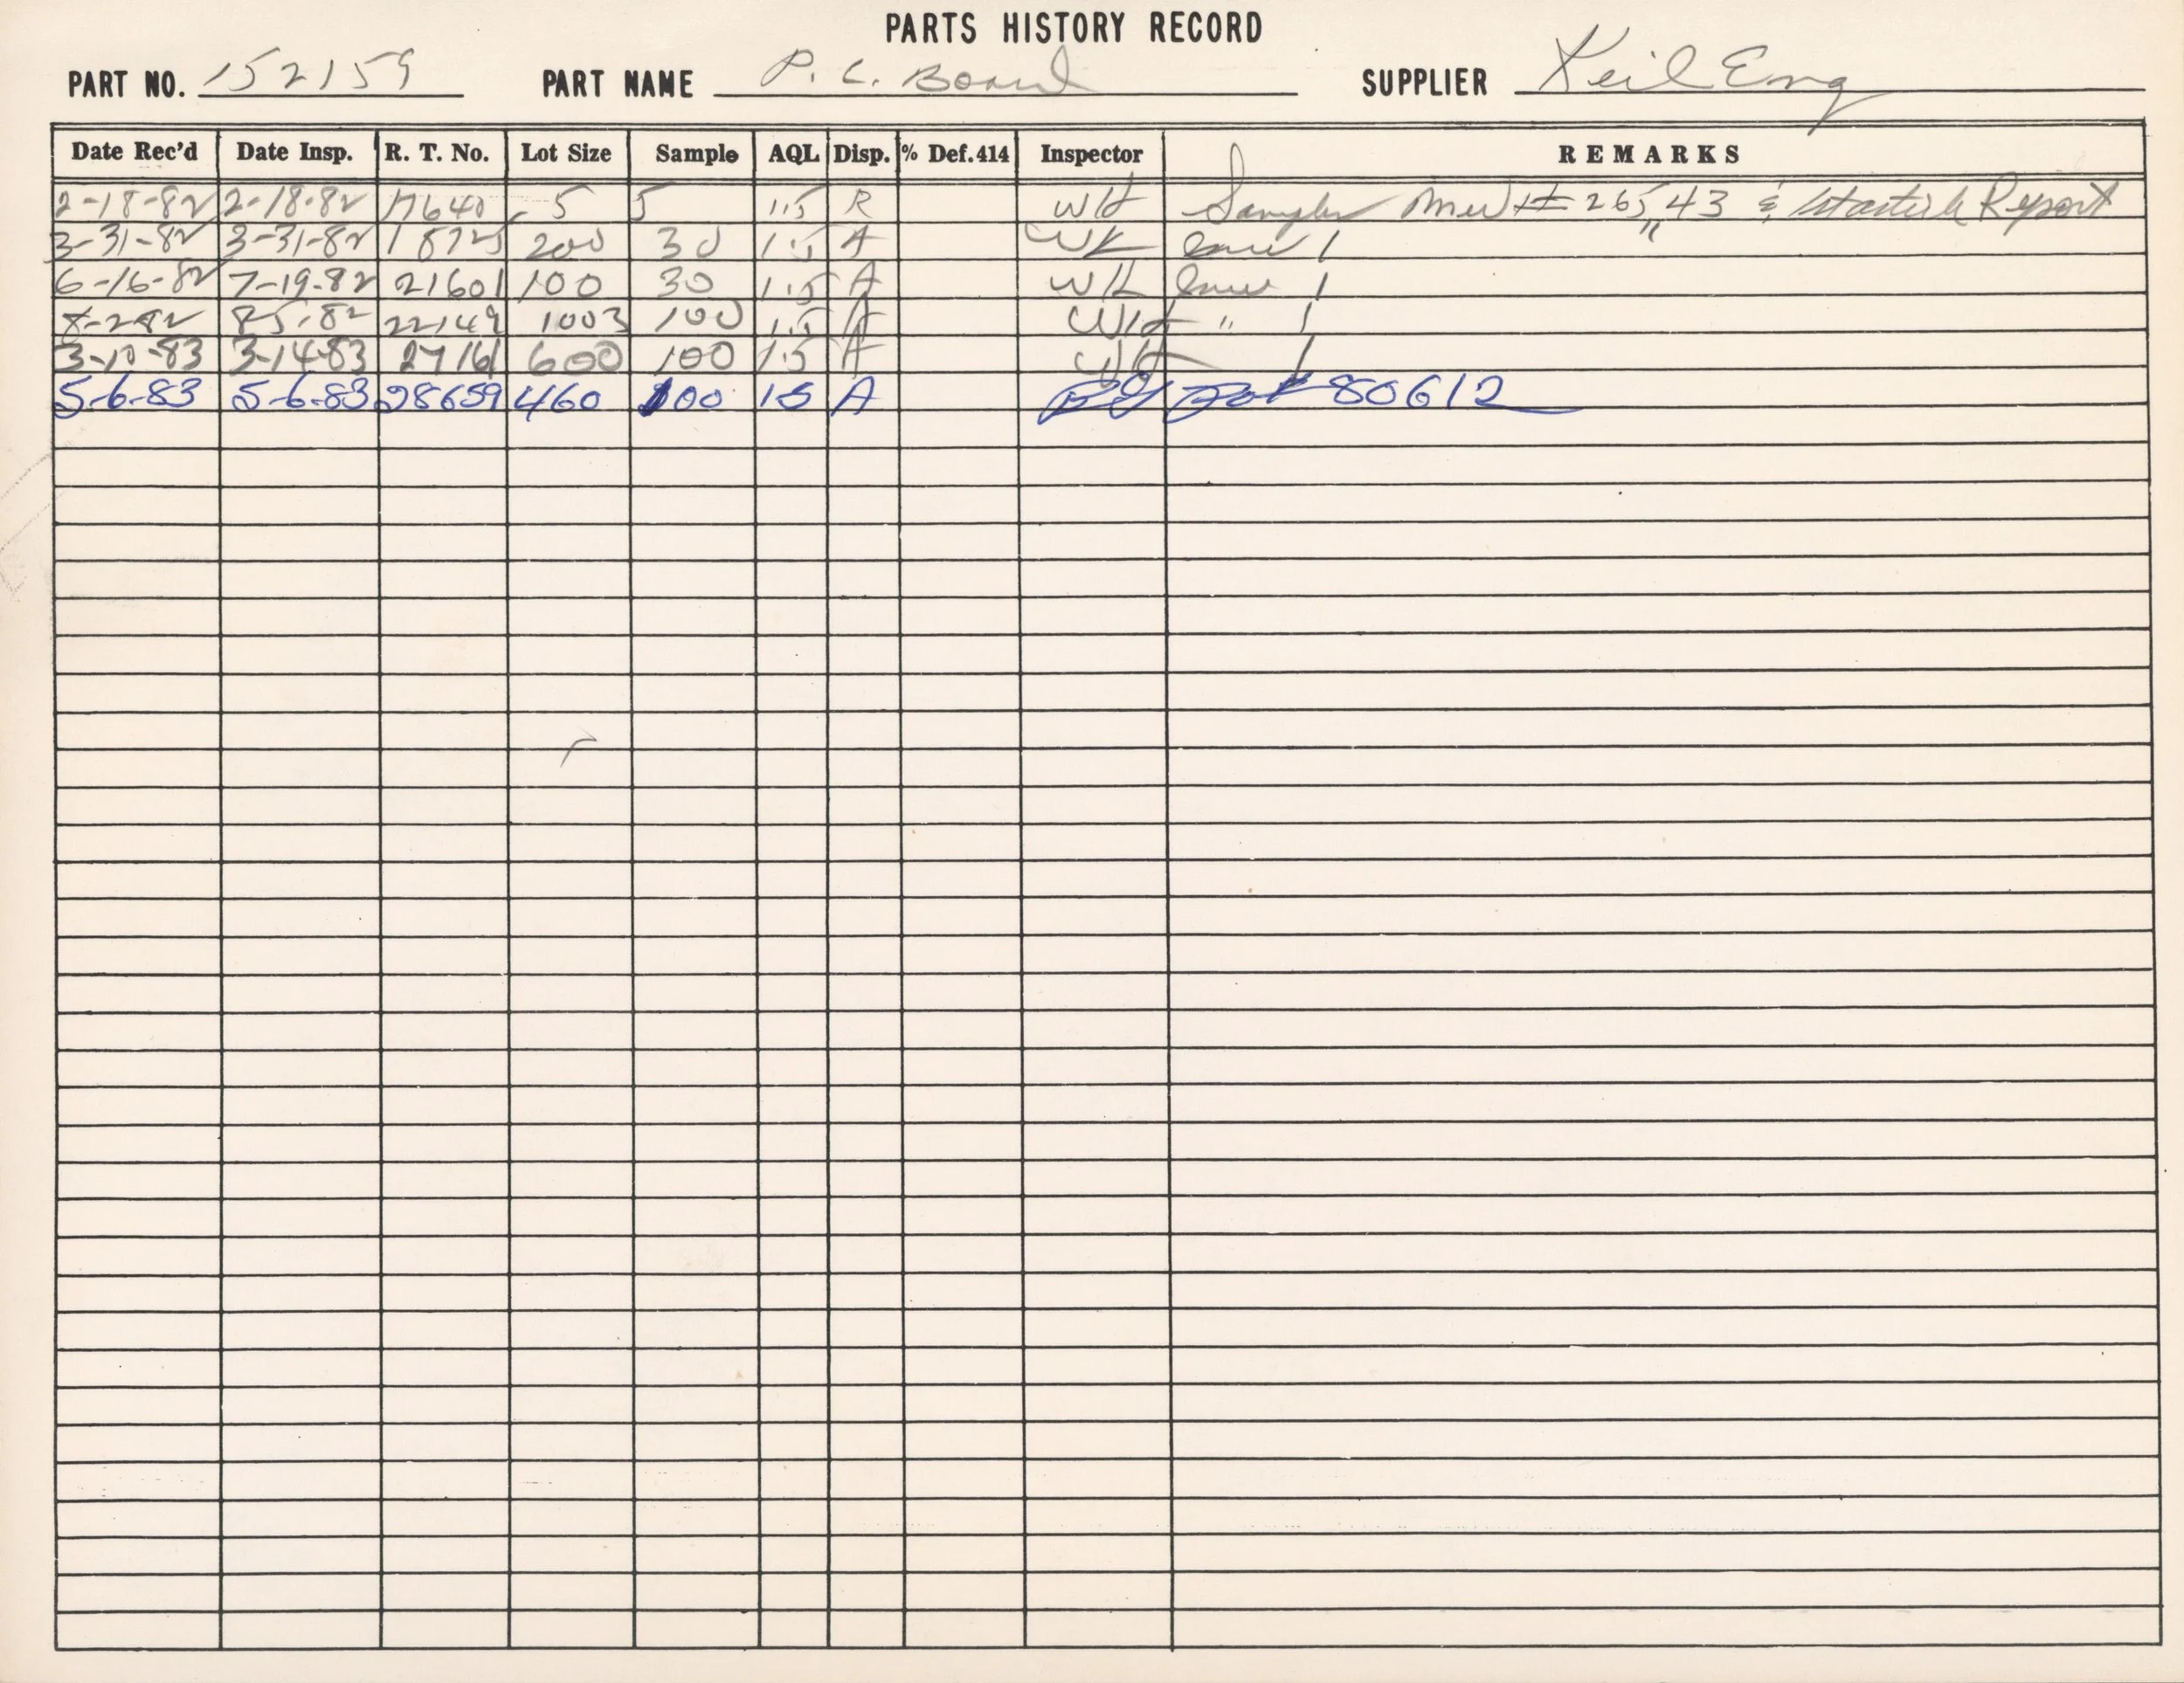 PARTS HISTORY RECORD
PART NO. 152159 PART NAME P. C. Board SUPPLIER Keil Eng
Date Rec'd Date Insp. R. T. No. Lot Size Sample AQL Disp. % Def.414 Inspector REMARKS
2-18-82 2-18-82 17640 5 5 1.5 R WH Samples # 265,43 & Report
3-31-82 3-31-82 18725 200 30 1.5 A 1 "
6-16-82 7-19-82 21601 100 30 1.5 A WH 1
8-2-82 8-5-82 22149 1003 100 1.5 A WH " 1
3-10-83 3-14-83 27161 600 100 1.5 A WH 1
5-6-83 5-6-83 28659 460 100 1.5 A 80612